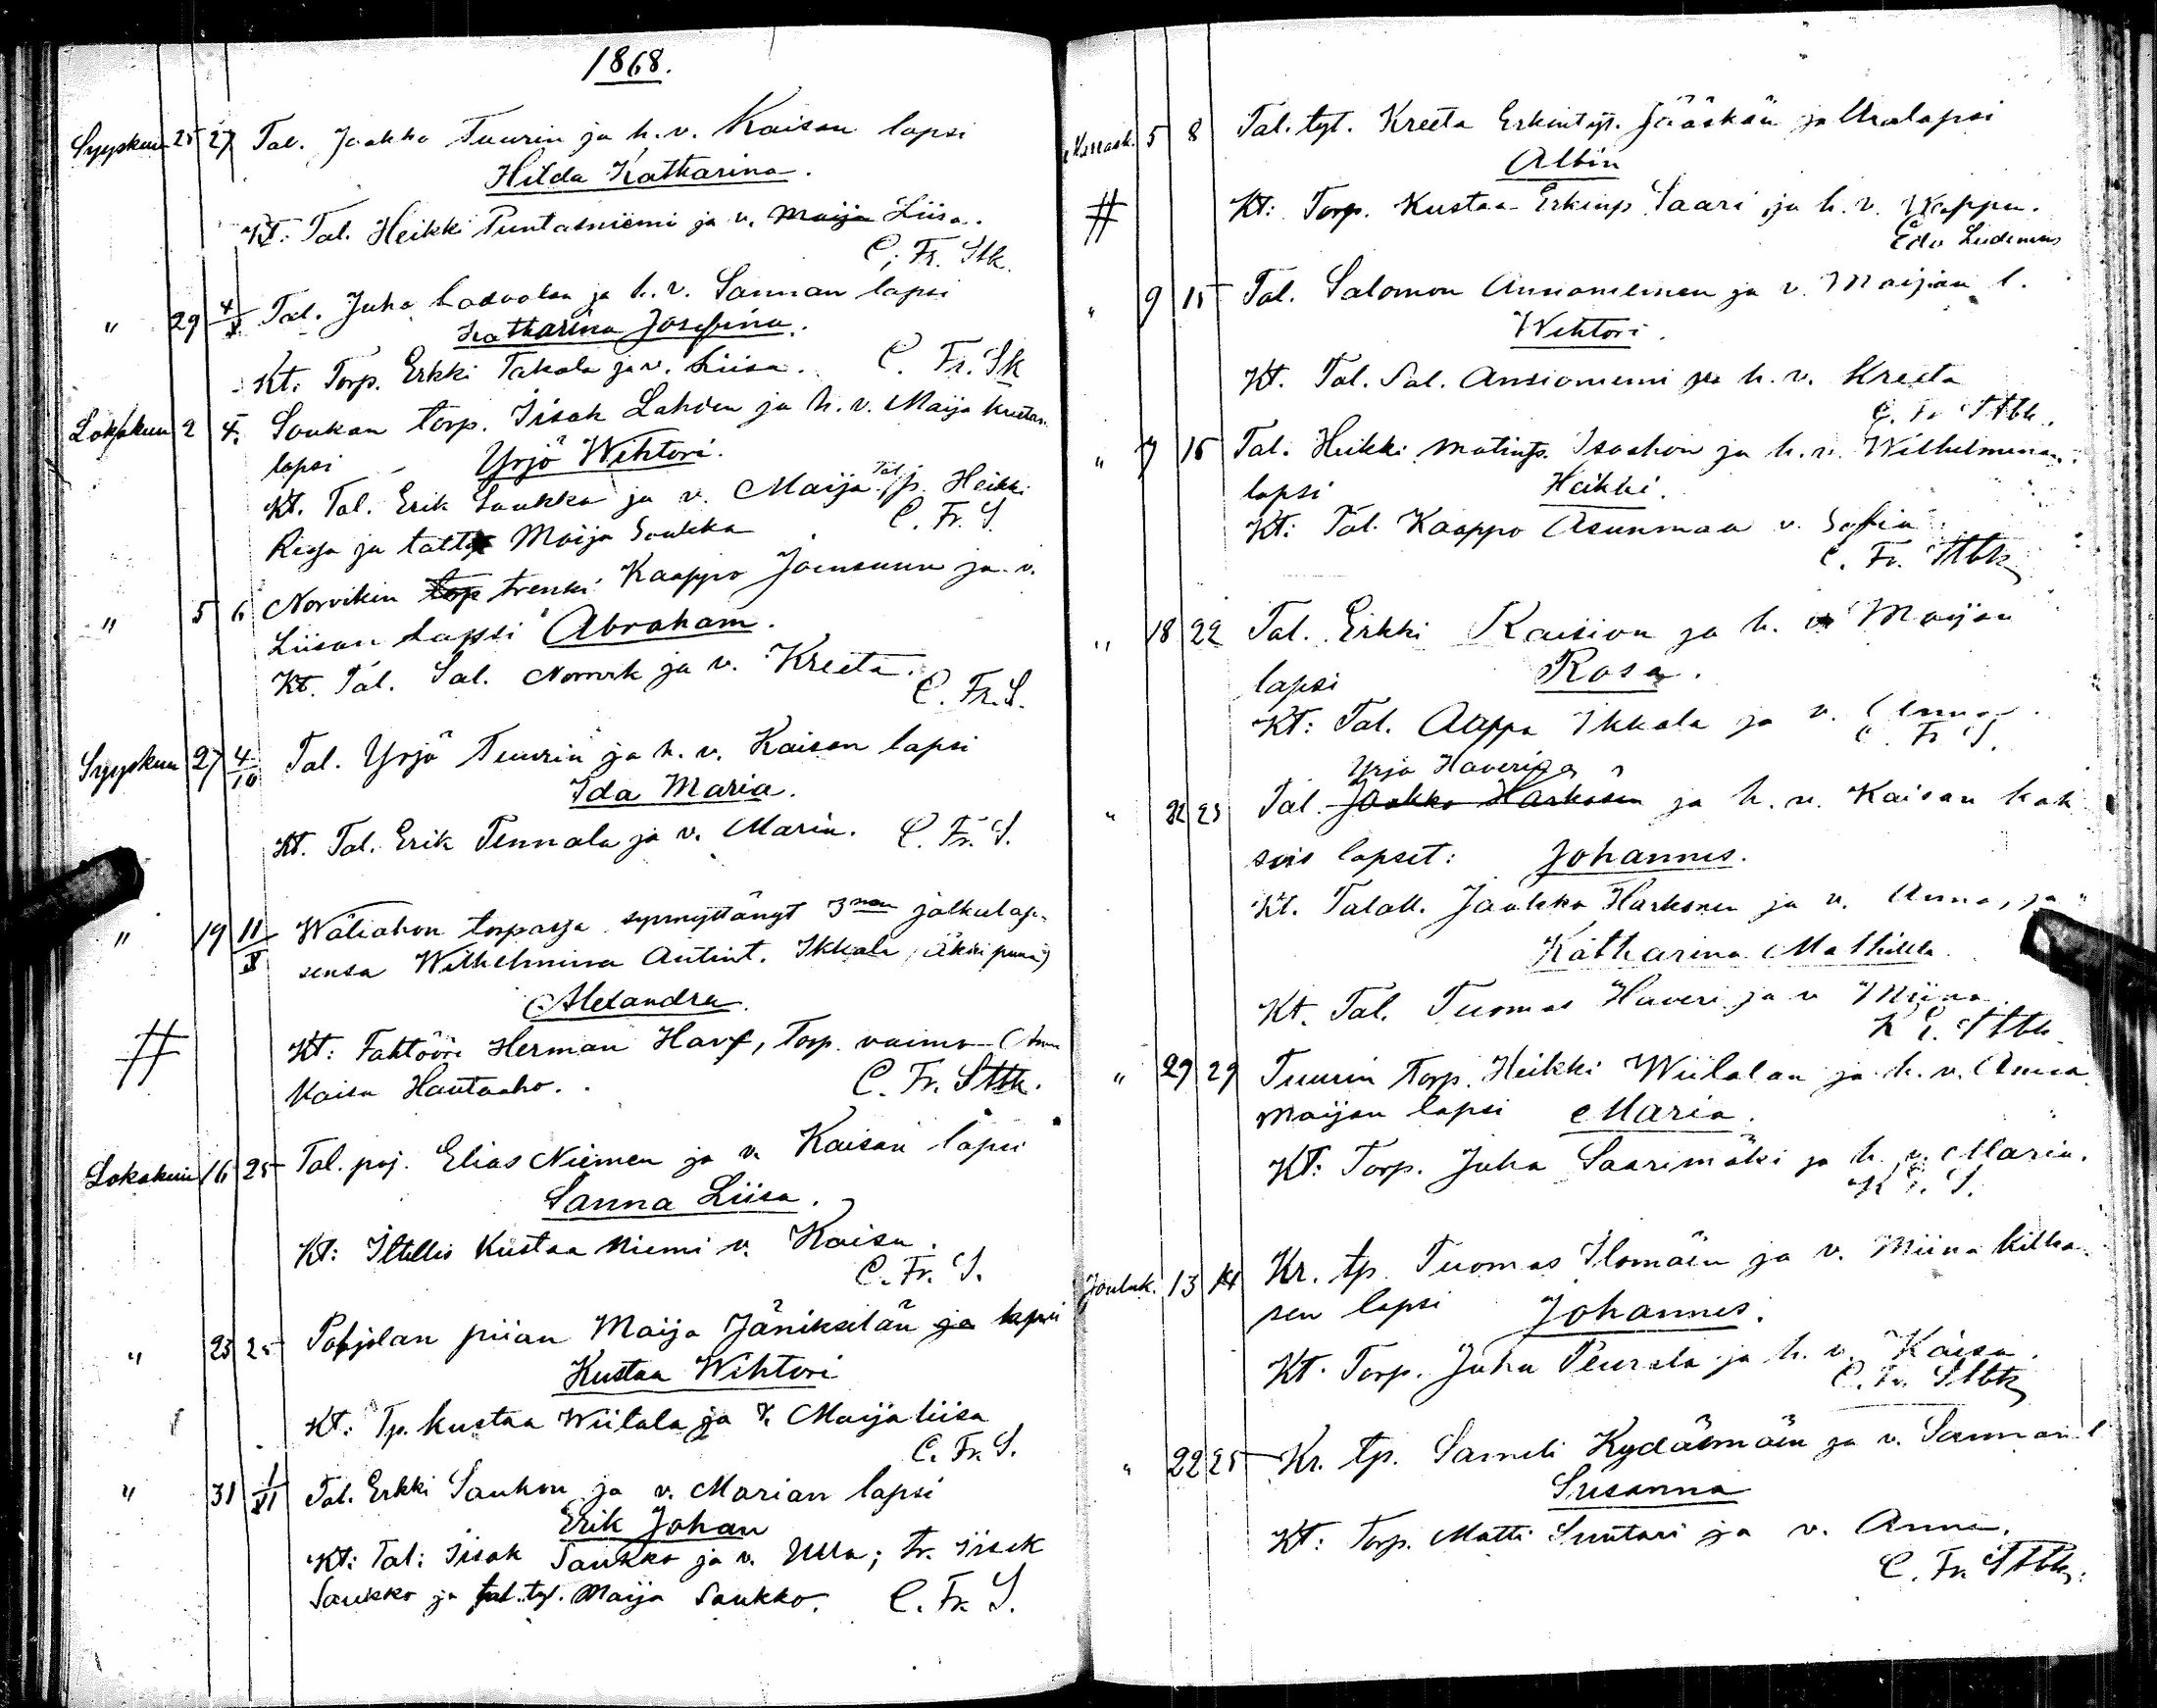 1868.
Syyskuu 25 27 Tal. Jaakko Tuurin ja h.v. Kaisan lapsi
Hilda Katharina.
Kt: Tal. Heikki Puntasniemi ja v. Maija Liisa.
C. Fr. Stk.
" 29 4/X Tal. Juho Ladvalan ja h.v. Sannan lapsi
Katharina Josefina.
Kt: Torp. Erkki Takala ja v. Liisa. C. Fr. Sk
Lokakuu 2 4. Soukan torp. Iisak Lahden ja h.v. Maija
lapsi Yrjö Wihtori.
Kt. Tal. Erik Saukko ja v. Maija, Tal. p. Heikki
ja Maija Saukko C. Fr. S.
" 5 6 Norvikin top trenki Kaappo Joensuun ja v.
Liisan lapsi Abraham.
Kt. Tal. Sal. Norvik ja v. Kreeta.
C. Fr. S.
Syyskuu 27 4/10 Tal. Yrjö Tuurin ja h.v. Kaisan lapsi
Ida Maria.
Kt. Tal. Erik Pennala ja v. Maria. C. Fr. S.
" 19 11/X torpassa synnyttänyt 3nen jalkulap-
sensa Wilhelmina Antint. Ikkala
Alexandra.
# Kt: Faktööri Herman Harf, Torp. vaimo Anna
Kaisa Hautaaho. C. Fr. Sttbk.
Lokakuu 16 25 Tal. poj. Elias Niemen ja v. Kaisan lapsi
Sanna Liisa.
Kt: Itellis Kustaa Niemi v. Kaisa.
C. Fr. S.
" 23 25 Pohjolan piian Maija Jänikselän ja lapsi
Kustaa Wihtori
Kt: Tp. Kustaa Wiitala ja v. Maija Liisa
C. Fr. S.
" 31 1/XI Tal. Erkki Saukon ja v. Marian lapsi
Erik Johan
Kt: Tal: Iisak Saukko ja v. Ulla; tr. Iisak
Saukko ja tal. tyt. Maija Saukko. C. Fr. S.
Marrask. 5 8 Tal. tyt. Kreeta Erkintyt. Jääskän ja Uralapsi
Albin
# Kt: Torp. Kustaa Erkinp. Saari, ja h.v. Wappu.
" 9 15 Tal. Salomon Ansioniemen ja v. Maijan l.
Wihtori.
Kt. Tal. Sal. Ansioniemi ja h.v. Kreeta
C. Fr. Sttbk.
" 7 15 Tal. Heikki Matinp. Isoahon ja h.v. Wilhelminan
lapsi Heikki.
Kt: Tal. Kaappo Asunmaa v. Sofia
C. Fr. Sttbk
" 18 22 Tal. Erkki Raision ja h. v. Maijan
lapsi Rosa.
Kt: Tal. Aappa Ikkala ja v. Anna.
C. Fr. S.
Yrjö Haverin
" 22 23 Tal. Jaakko Harkosen ja h.v. Kaisan kak
sois lapset: Johannes.
Kt. Talall. Jaakko Harkonen ja v. Anna, ja
Katharina Mathilda
Kt. Tal. Tuomas Haveri ja v Miina.
K E. Sttbk
" 29 29 Tuurin Torp. Heikki Wiilalan ja h.v. Anna
Maijan lapsi Maria.
Kt: Torp. Juha Saarimäki ja h. v. Maria.
K E. S.
Jouluk. 13 14 Kr. tp. Tuomas Ilomäen ja v. Miina Kilka-
sen lapsi Johannes.
Kt. Torp. Juha Peurala ja h. v. Kaisa.
C. Fr. Sttbk
" 22 25 Kr. tp. Sameli Kydäsmäen ja v. Sannan l
Susanna
Kt: Torp. Matti Suntari ja v. Anna.
C. Fr. Sttbk.